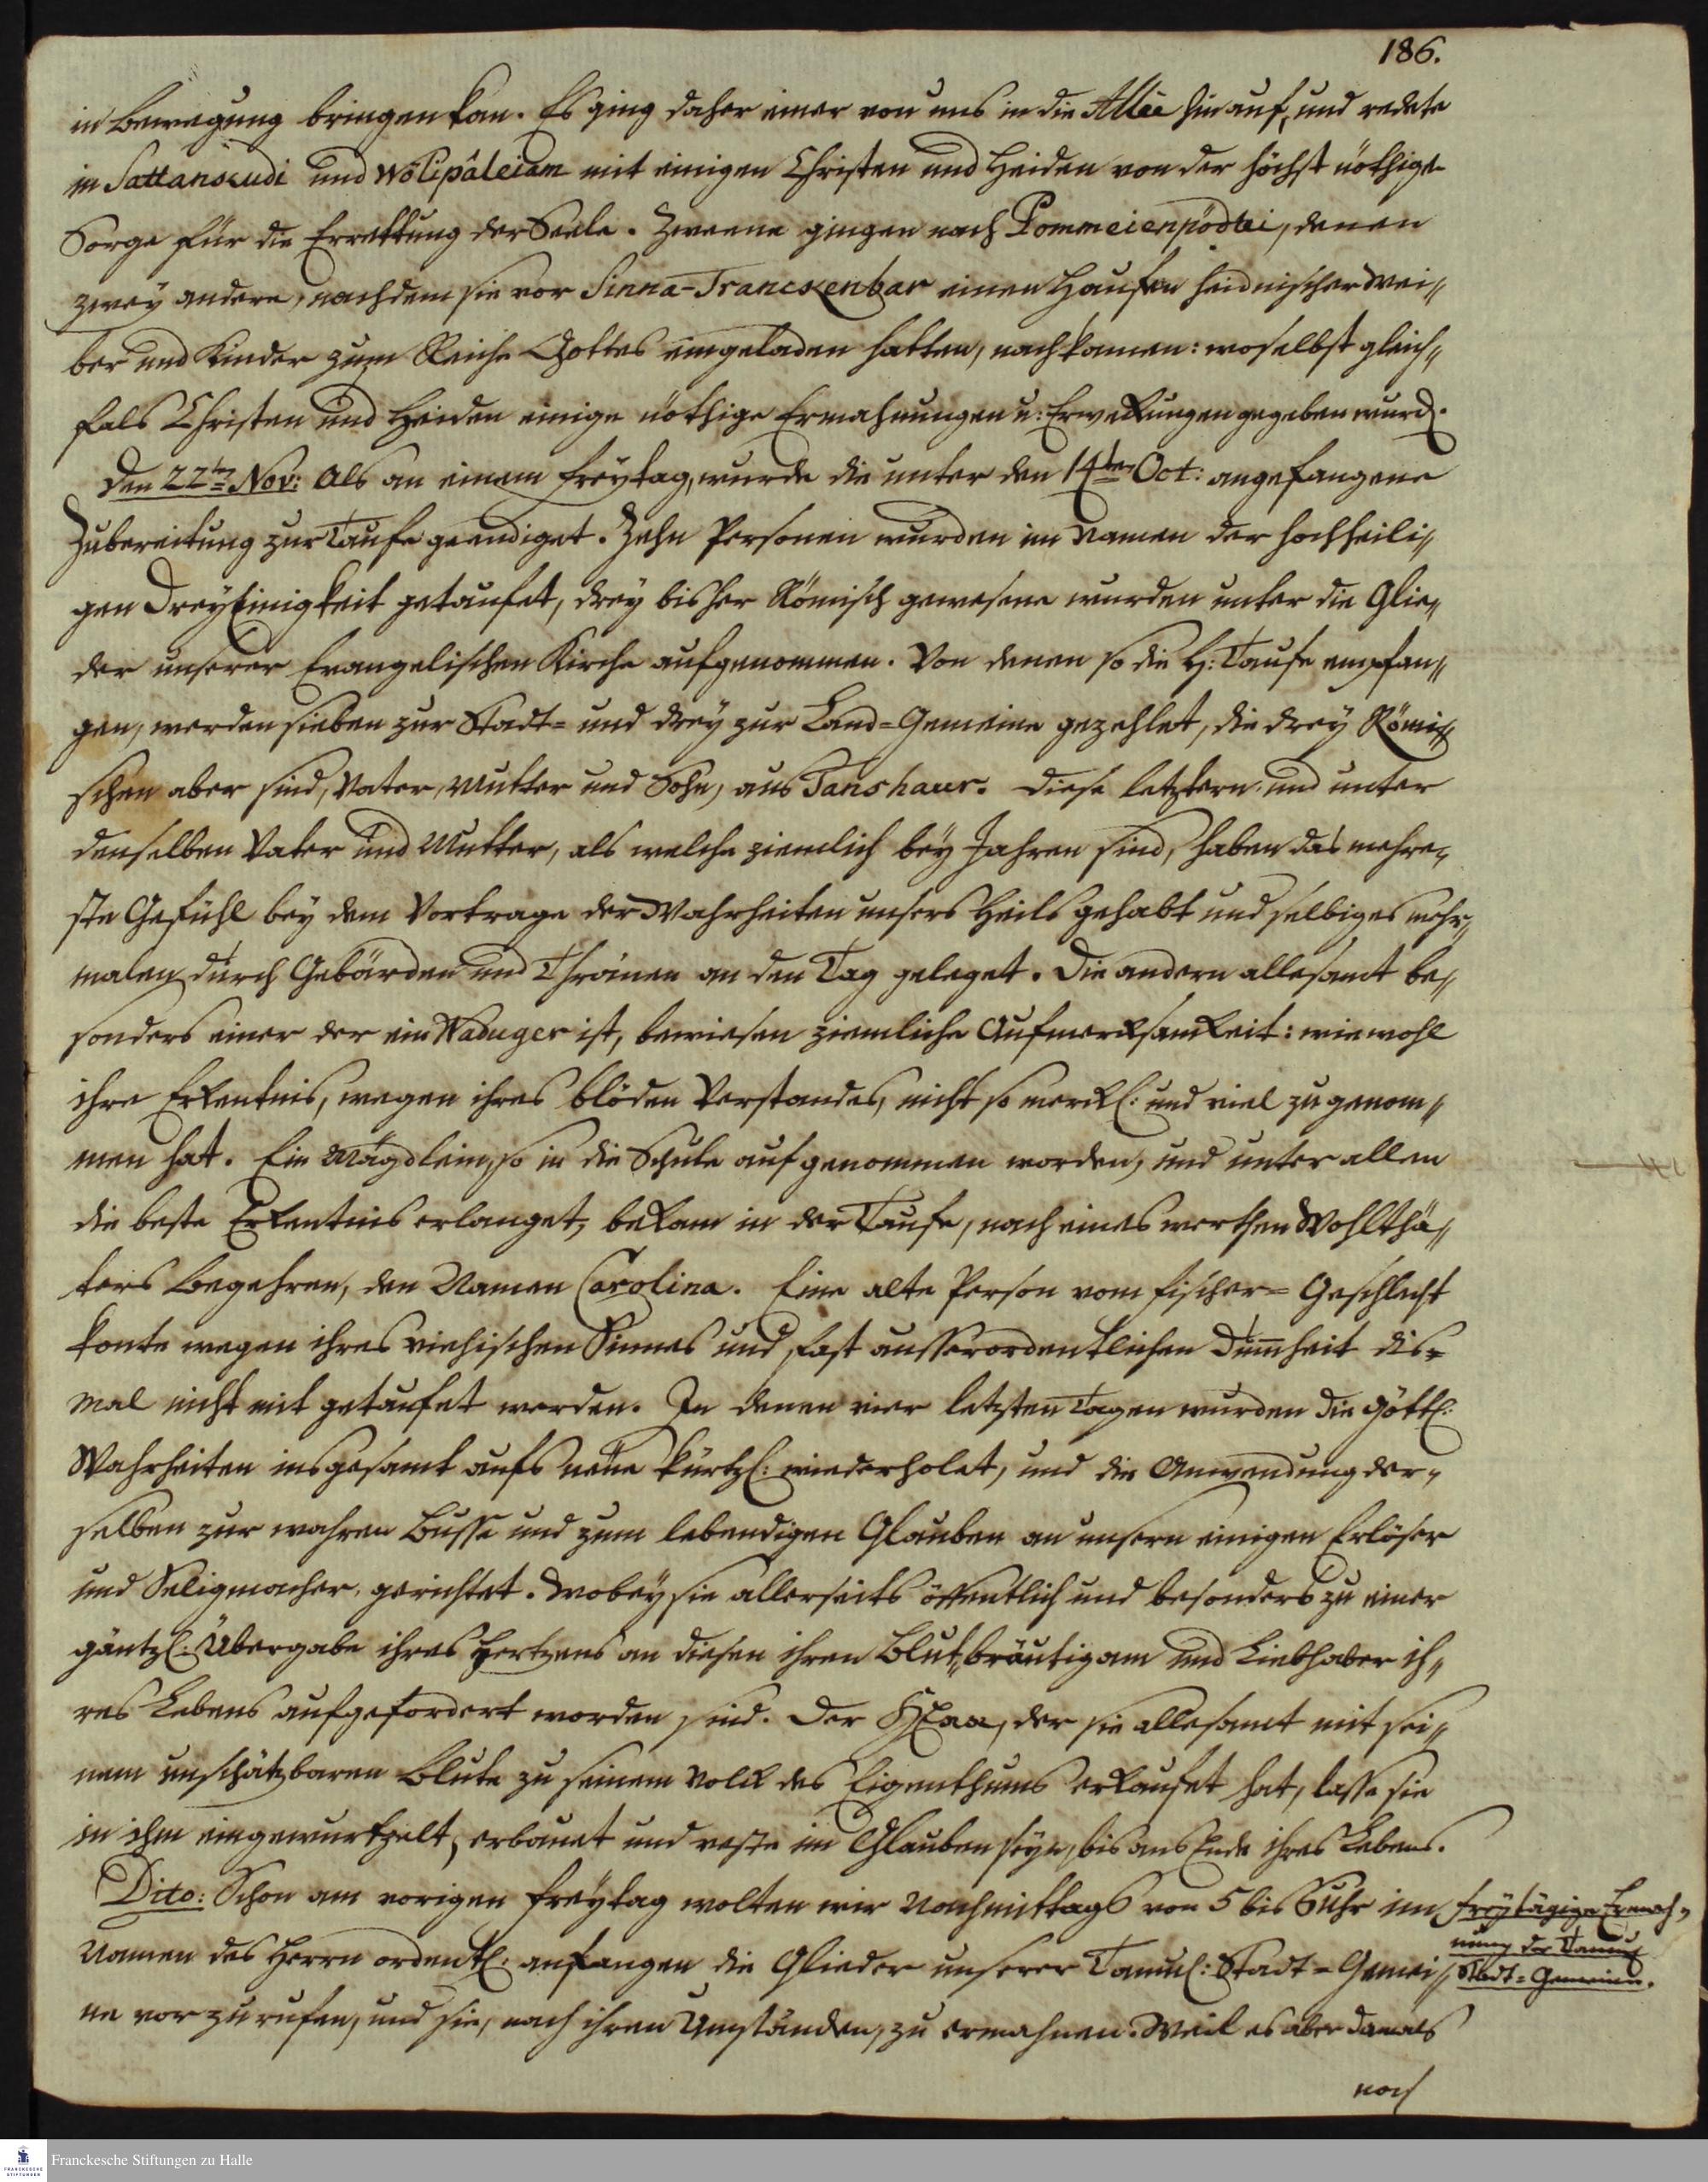 186.
in Bewegung bringen kan. Es ging daher einer von uns in die Allée hinauf, und redete
in Sattanscudi und Wölipâleiam mit einigen Christen und Heiden von der höchst nöthige
Sorge für die Errettung der Seele. Zweene gingen nach Pommeienpödtei, denen
zwey andere, nachdem sie vor Sinna-Trancкenbar einen Haufen heidnischer Wei„
ber und Kinder zum Reiche Gottes eingeladen hatten, nachkamen: woselbst gleich„
fals Christen und Heiden einige nöthige Ermahnungen u: Erweckungen gegeben wurd.
Den 22ten Nov: Als an einem Freytag, wurde die unter den 14ten Oct: angefangene
Zubereitung zur Taufe geendiget. Zehn Personen wurden im Namen der hochheili„
gen DreyEinigkeit getaufet, drey bisher Römisch gewesene wurden unter die Glie„
der unserer Evangelischen Kirche aufgenommen. Von denen so die H: Taufe empfan„
gen, werden sieben zur Stadt= und drey zur Land=Gemeine gezehlet, die drey Römi„
schen aber sind, Vater, Mutter und Sohn, aus Tanshaur. Diese letztern, und unter
denselben Vater und Mutter, als welche ziemlich bey Jahren sind, haben das mehre„
ste Gefühl bey dem Vortrage der Wahrheiten unsers Heils gehabt und selbiges mehr„
malen durch Gebärden und Thränen an den Tag geleget. Die andern allesamt be„
sonders einer der ein Waduger ist, bewiesen ziemliche Aufmercksamkeit: wiewohl
ihre Erkentnis, wegen ihres blöden Verstandes, nicht so merckl: und viel zugenom„
men hat. Ein Mägdlein, so in die Schule aufgenommen worden, und unter allen
die beste Erkentnis erlanget, bekam in der Taufe, nach eines werthen Wohlthä„
ters Begehren, den Namen Carolina. Eine alte Person vom Fischer=Geschlecht
konte wegen ihres viehischen Sinnes und fast ausserordentlichen Dumheit dis=
mal nicht mit getaufet werden. In denen vier letzten Tagen wurden die Göttl:
Wahrheiten insgesamt aufs neue kürtzl: wiederholet, und die Anwendung der„
selben zur wahren Busse und zum lebendigen Glauben an unsern einigen Erlöser
und Seligmacher, gerichtet. Wobey sie allerseits öffentlich und besonders zu einer
gäntzl: Übergabe ihres Hertzens an diesen ihren Blut„bräutigam und Liebhaber ih„
res Lebens aufgefordert worden sind. Der HErr, der sie allesamt mit sei„
nem unschätzbaren Blute zu seinem Volck des Eigenthums erkaufet hat, lasse sie
in ihm eingewurtzelt, erbauet und veste im Glauben seyn, bis ans Ende ihres Lebens.
Dito: Schon am vorigen Freytag wolten wir Nachmittags von 5 bis 6 Uhr im
Freytägige Ermah„
nung der Tamul
Stadt=Gemeine.
Namen des Herrn ordentl: anfangen die Glieder unserer Tamul: Stadt=Gemei„
ne vorzurufen, und sie, nach ihren Umständen, zu ermahnen. Weil es aber damals
noch
Franckesche Stiftungen zu Halle
FRANCKESCHE
STIFTUNGEN